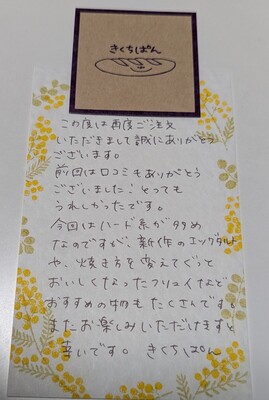 きくちぱん
この度は再度ご注文
いただきまして誠にありがとう
ございます。
前回は口コミもありがとう
ございました！とっても
うれしかったです。
今回はハード系が多め
なのですが、新作のエングタルト
や、焼き方を変えてぐっと
おいしくなったフリュイなど
おすすめの物もたくさんですと
またお楽しみいただけますと
幸いです。 きくちぱん